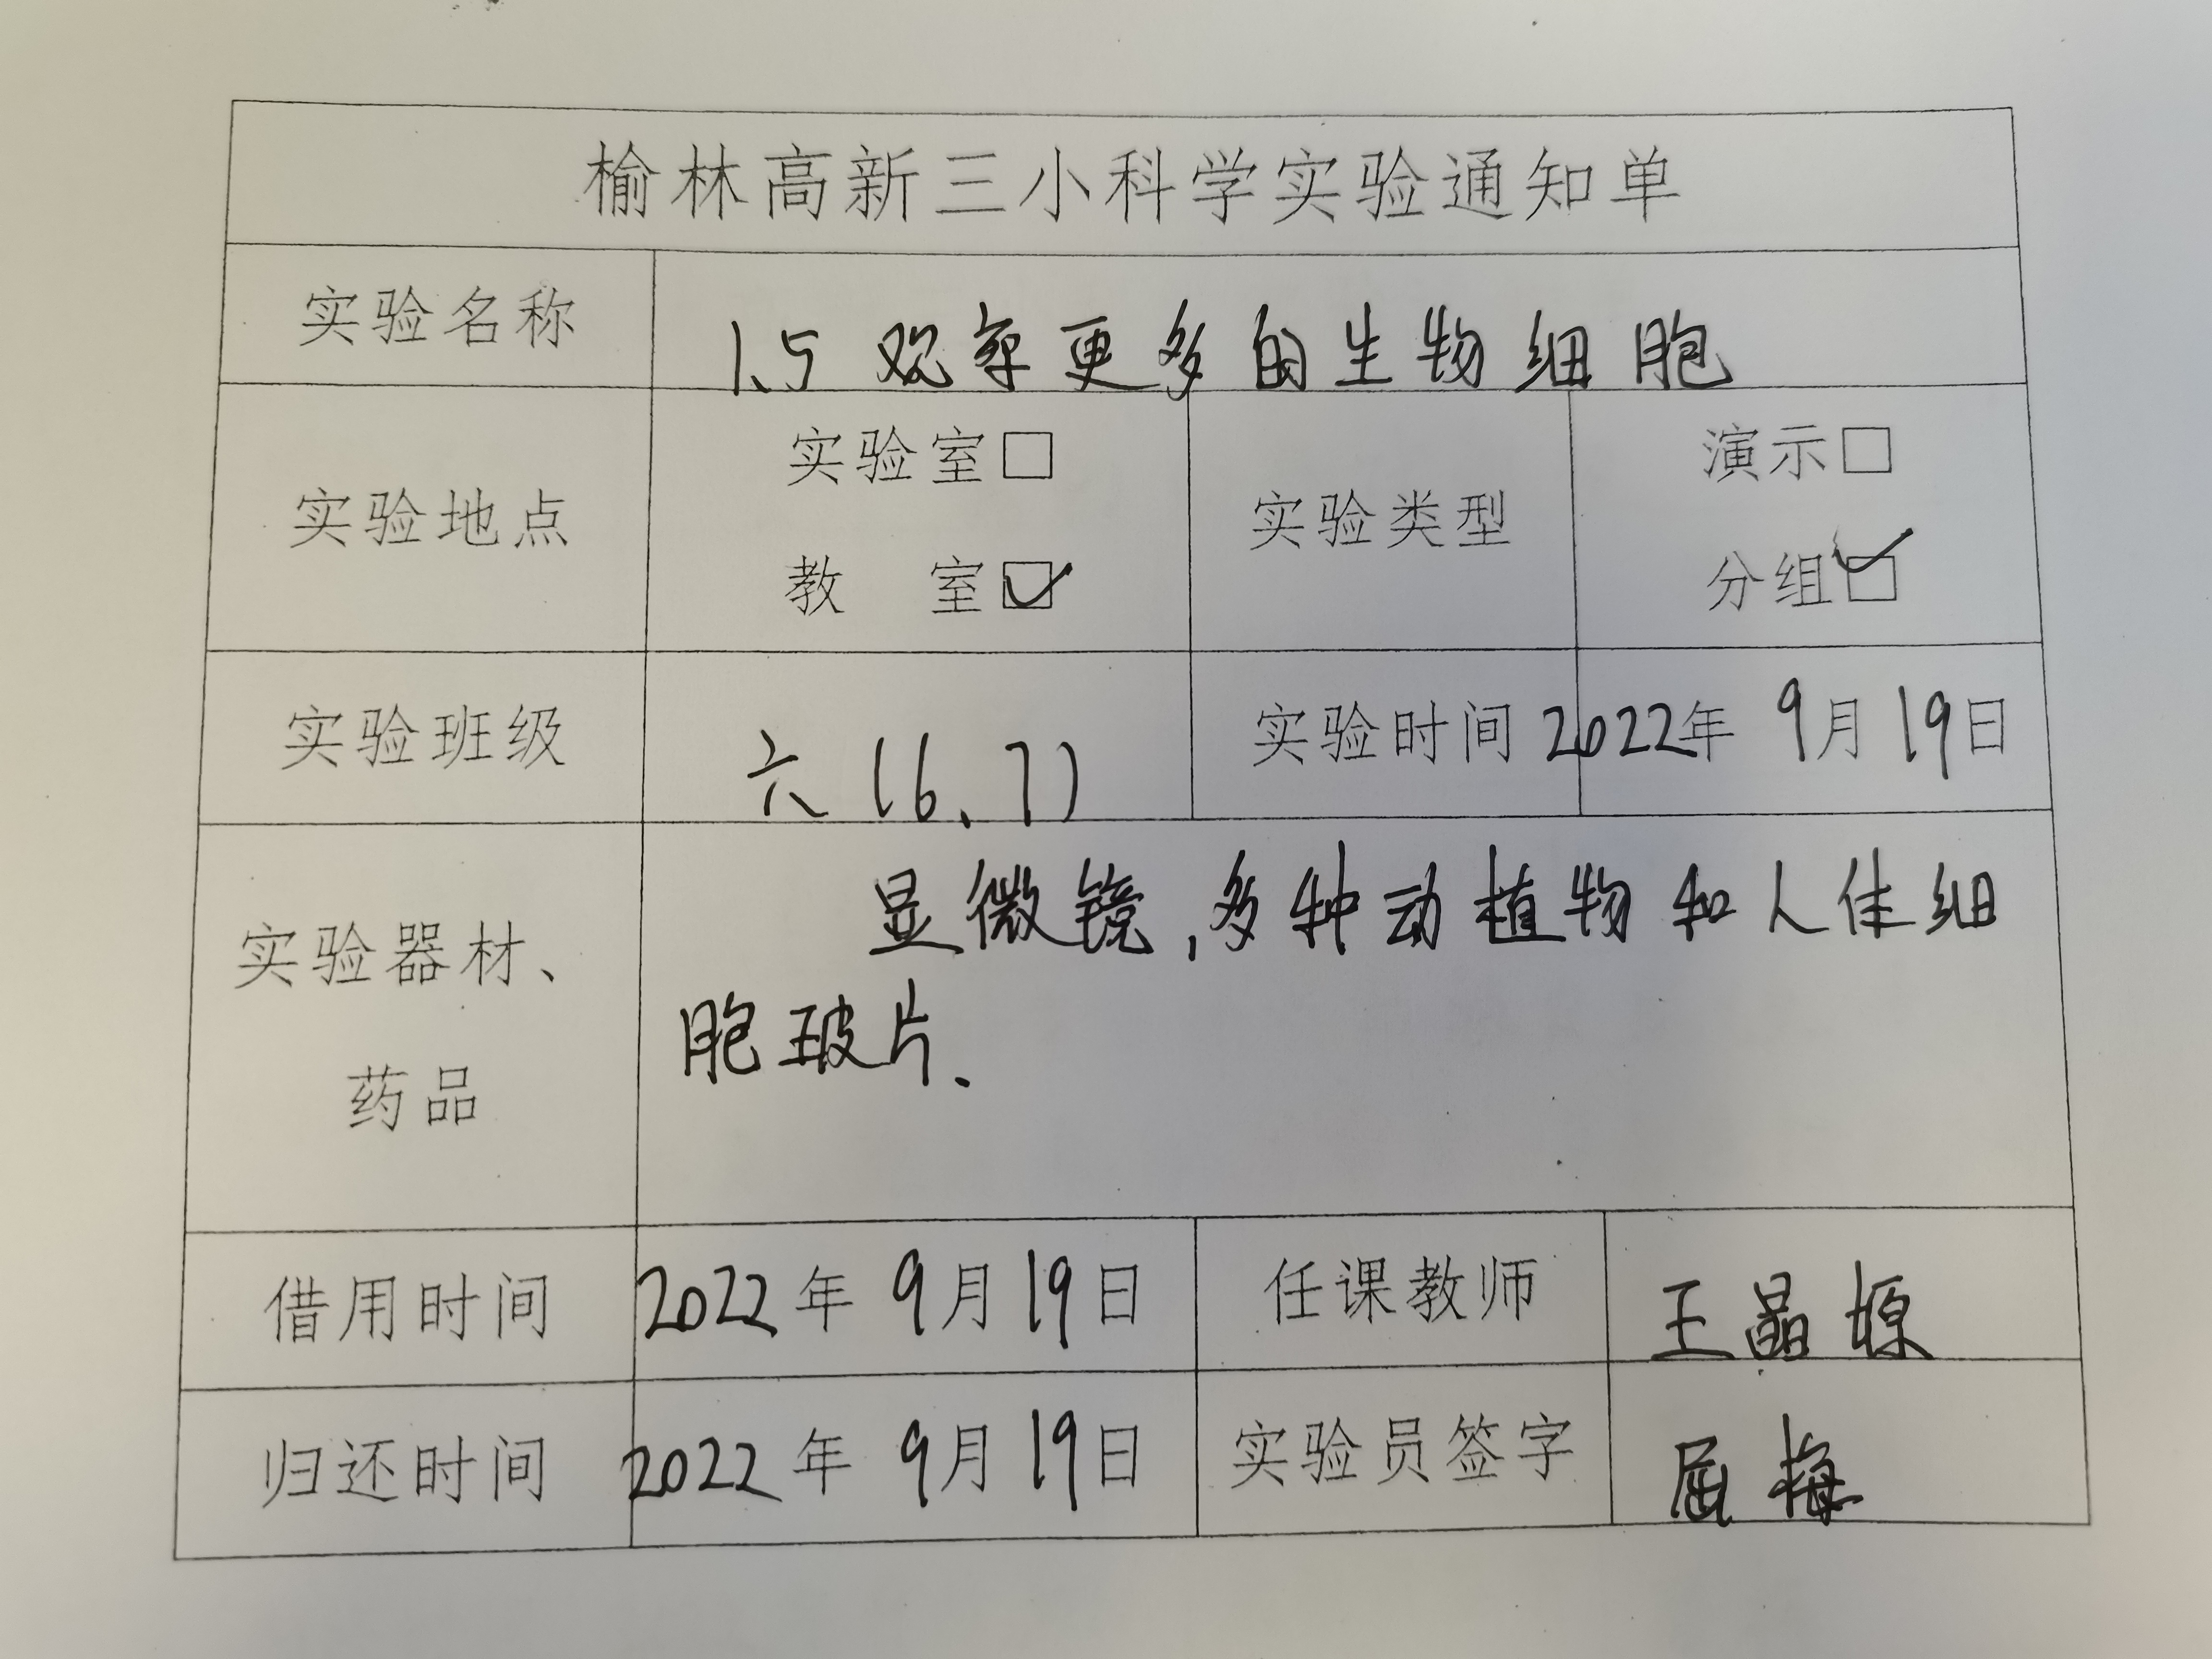 榆林高新三小科学实验通知单
实验名称 1.5 观察更多的生物细胞
实验地点 实验室□ 教 室☑ 实验类型 演示□ 分组☑
实验班级 六(6、7) 实验时间 2022年 9月 19日
实验器材、药品 显微镜,多种动植物和人体细
胞玻片.
借用时间 2022年 9月19日 任课教师 王晶塬
归还时间 2022年 9月19日 实验员签字 屈梅